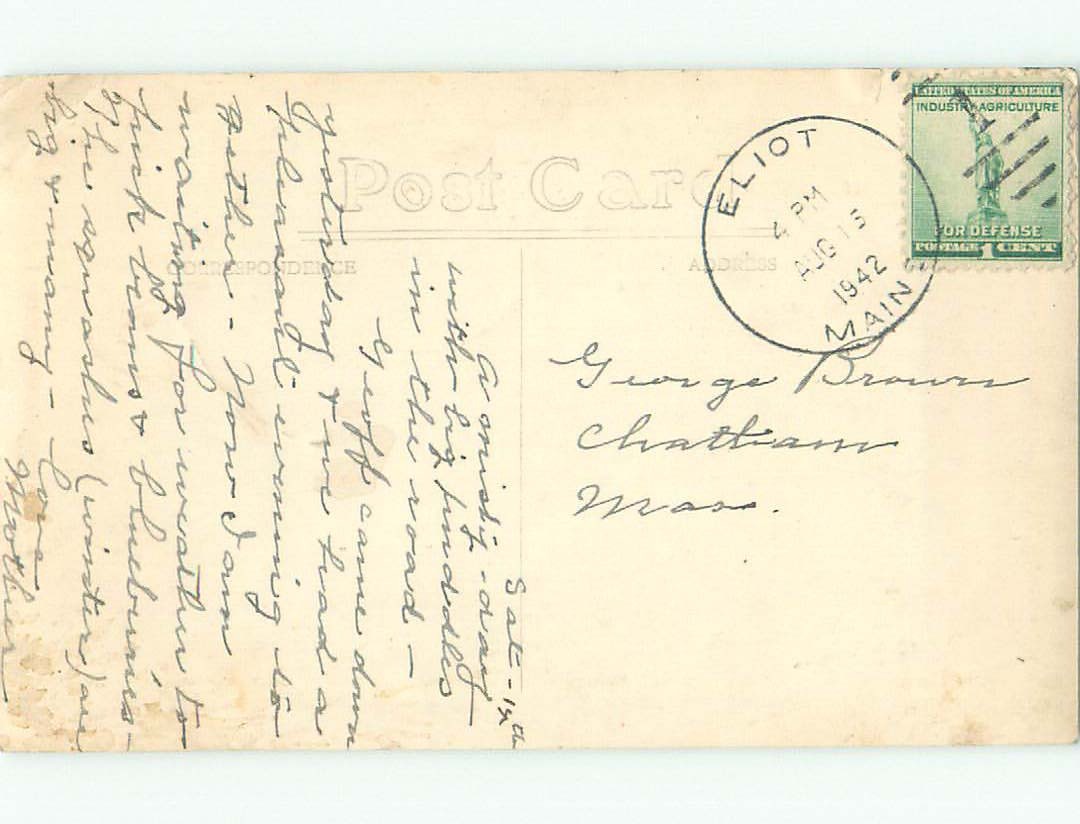 Post Card
CORRESPONDENCE
ADDRESS
ELIOT
4 PM
AUG 15
1942
MAINE
UNITED STATES OF AMERICA
INDUSTRY AGRICULTURE
FOR DEFENSE
POSTAGE 1 CENT
George Brown
Chatham
Mass.
Sat -
A misty day
with big puddles
in the road -
Geoff came down
yesterday & we had a
pleasant evening to
gether - Now I am
waiting for weather to
pick beans & blueberries -
The squashes (winter) are
big & many - Love
Mother